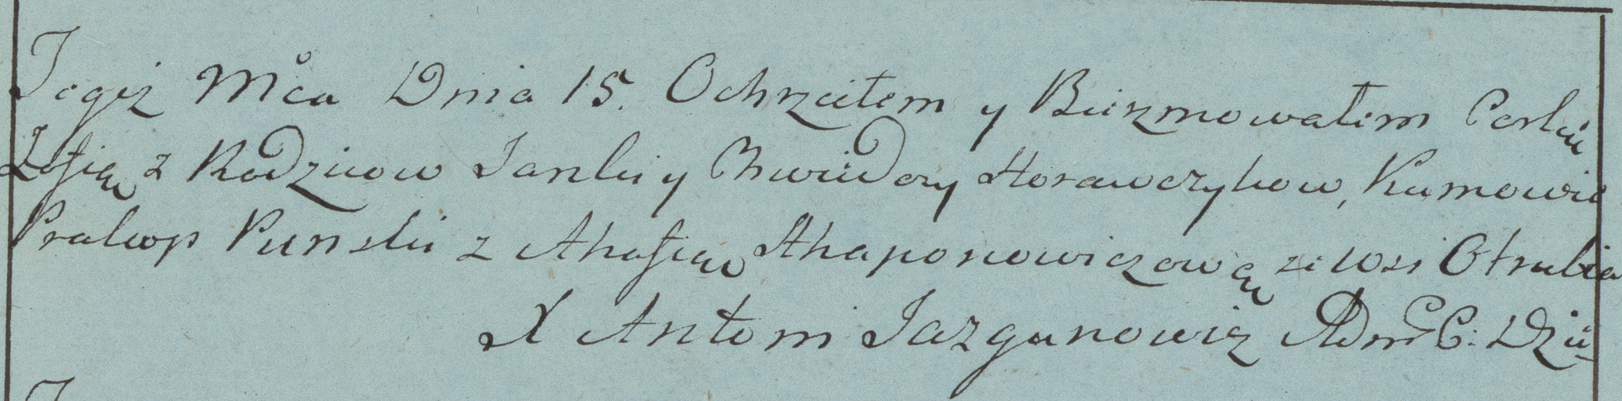 Tegoż Mca Dnia 15. Ochrzciłem y Bierzmowałem Corkę
Zofią z Rodzicow Janki y Chwiedory Horawczykow, Kumowie
Prakop Punski z Ahafią Ahaponowiczową ze Wsi Otrubia
X Antoni Jazgunowicz Adm C: